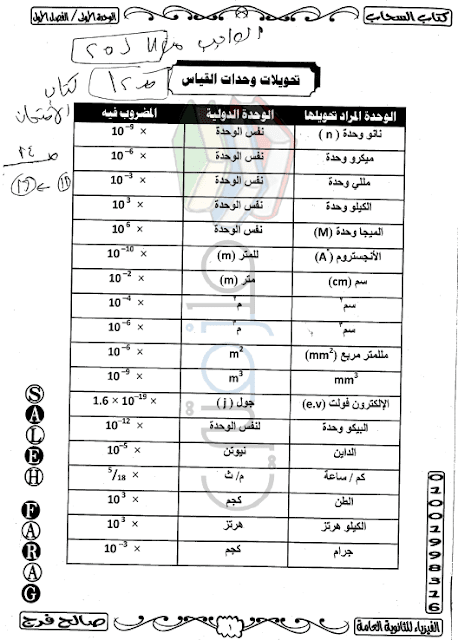 كتاب السحاب
الوحدة الأول / الفصل الأول
الواجب
كتاب
الأمتحان
صـ ٢٤
تحويلات وحدات القياس
الوحدة المراد تحويلها الوحدة الدولية المضروب فيه
نانو وحدة (n) نفس الوحدة × 10⁻⁹
ميكرو وحدة نفس الوحدة × 10⁻⁶
مللي وحدة نفس الوحدة × 10⁻³
الكيلو وحدة نفس الوحدة × 10³
الميجا وحدة (M) نفس الوحدة × 10⁶
الأنجستروم (A°) للمتر (m) × 10⁻¹⁰
سم (cm) متر (m) × 10⁻²
سم٢ م٢ × 10⁻⁴
سم٣ م٣ × 10⁻⁶
مللمتر مربع (mm²) m² × 10⁻⁶
mm³ m³ × 10⁻⁹
الإلكترون فولت (e.v) جول (j) × 1.6 × 10⁻¹⁹
البيكو وحدة لنفس الوحدة × 10⁻¹²
الداين نيوتن × 10⁻⁵
كم / ساعة م/ ث × 5/18
الطن كجم × 10³
الكيلو هرتز هرتز × 10³
جرام كجم × 10⁻³
SALEH FARAG
01001998316
الفيزياء للثانوية العامة
١
صالح فرج